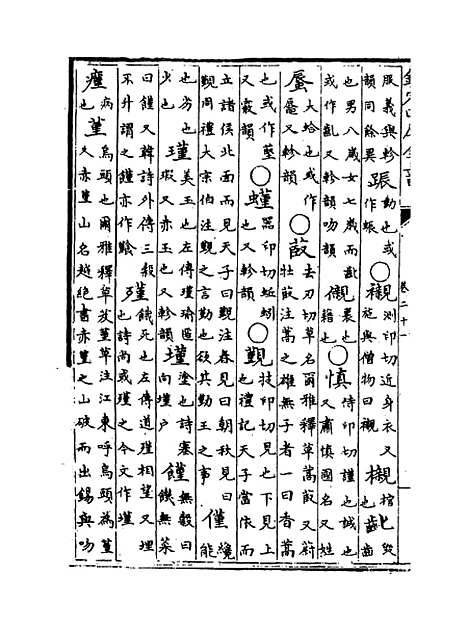 欽定四庫全書
卷二十一
服義與軫韻同餘異動也或作○襯測印切近身衣又施與僧物曰襯櫬棺也齔毁齒
也男八歲女七歲而齔或作亂又軫韻吻韻裏也藉也○慎侍印切謹也誠也又肅慎國名又姓
蜃大蛤也或作蜄又軫韻○菣去刃切草名爾雅釋草蒿菣又蔚牡菣注蒿之雄無子者一曰香蒿
也或作又霰韻○螼羌印切蚯蚓也又軫韻○覲技印切見也下見上也禮記天子當依而
立諸侯北面而見天子曰覲注春見曰朝秋見曰覲周禮大宗伯注覲之言勤也欲其勤王之事僅纔能
也劣也少也瑾美玉也左傳瑾瑜匿瑕又赤玉也又軫韻墐塗也詩塞向墐戶饉無穀曰饑無菜
曰饉又韓詩外傳三穀不升謂之饉亦作殣餓死也左傳道殣相望又埋也詩尚或墐之今文作墐
病也堇烏頭也爾雅釋草芨堇草注江東呼烏頭為堇又赤堇山名越絕書赤堇之山破而出錫與吻